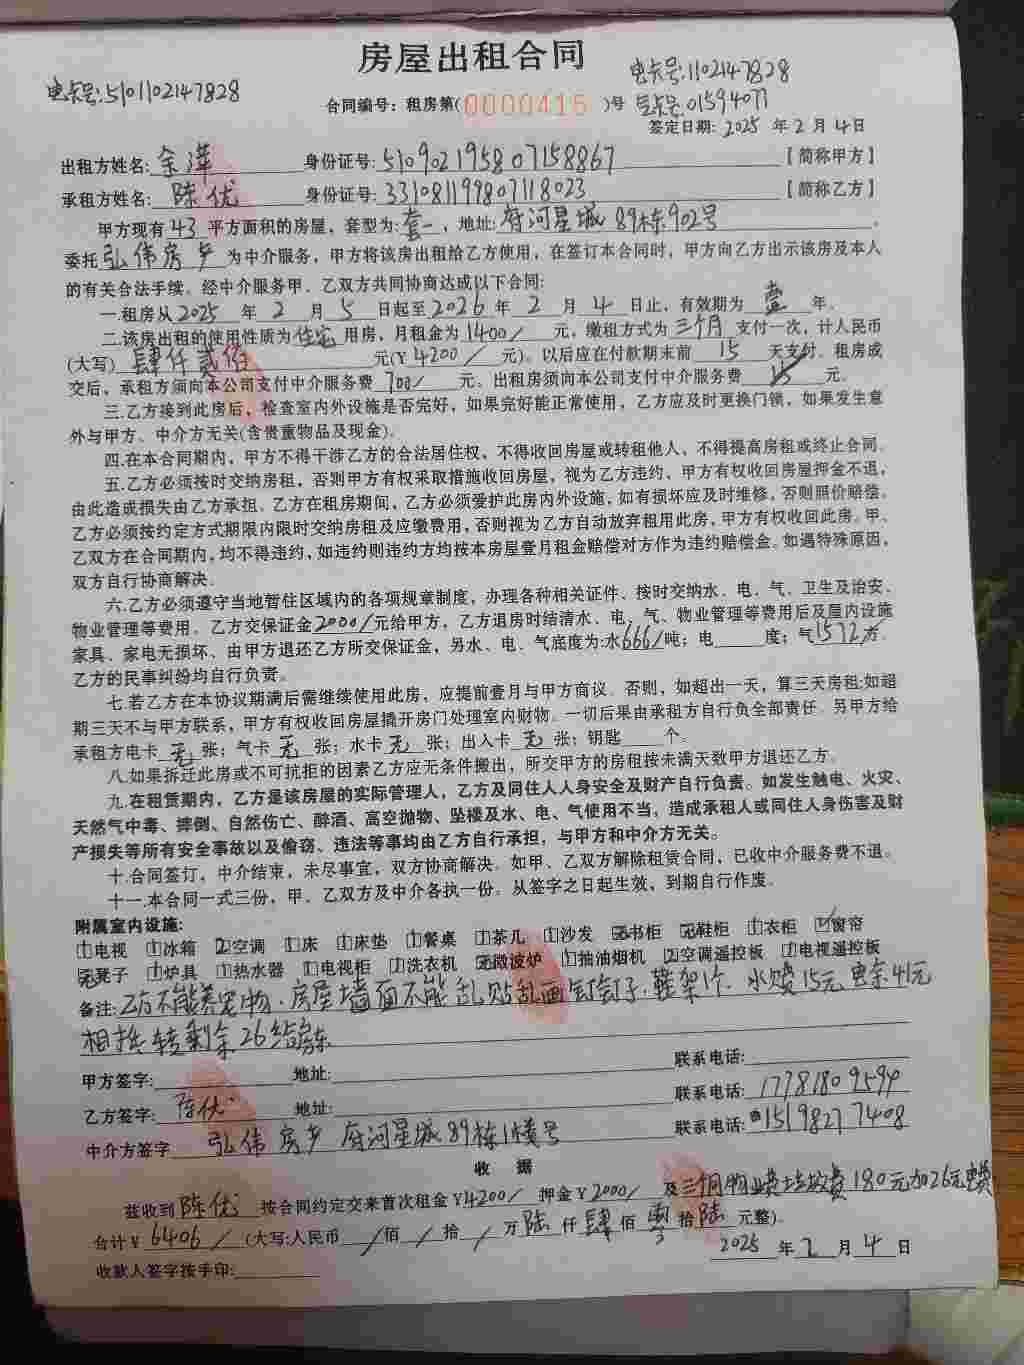 房屋出租合同
电卡号:5101102147828
电卡号:1102147828
合同编号：租房第(0000416)号 气卡号:01594071
签定日期: 2025 年 2 月 4 日
出租方姓名: 余萍 身份证号: 510902195807158867 【简称甲方】
承租方姓名: 陈优 身份证号: 331081199807118023 【简称乙方】
甲方现有 43 平方面积的房屋，套型为: 套一 ，地址: 府河星城 89栋902号 。
委托 弘伟房产 为中介服务，甲方将该房出租给乙方使用，在签订本合同时，甲方向乙方出示该房及本人
的有关合法手续。经中介服务甲、乙双方共同协商达成以下合同:
一.租房从 2025 年 2 月 5 日起至 2026 年 2 月 4 日止，有效期为 壹 年。
二.该房出租的使用性质为 住宅 用房，月租金为 1400/ 元，缴租方式为 三个月 支付一次，计人民币
(大写) 肆仟贰佰 元(¥ 4200/ 元)。以后应在付款期末前 15 天支付。租房成
交后，承租方须向本公司支付中介服务费 700/ 元。出租房须向本公司支付中介服务费 元。
三.乙方接到此房后，检查室内外设施是否完好，如果完好能正常使用，乙方应及时更换门锁，如果发生意
外与甲方、中介方无关(含贵重物品及现金)。
四.在本合同期内，甲方不得干涉乙方的合法居住权，不得收回房屋或转租他人，不得提高房租或终止合同。
五.乙方必须按时交纳房租，否则甲方有权采取措施收回房屋，视为乙方违约，甲方有权收回房屋押金不退，
由此造成损失由乙方承担。乙方在租房期间，乙方必须爱护此房内外设施，如有损坏应及时维修，否则照价赔偿。
乙方必须按约定方式期限内限时交纳房租及应缴费用，否则视为乙方自动放弃租用此房，甲方有权收回此房。甲、
乙双方在合同期内，均不得违约，如违约则违约方均按本房屋壹月租金赔偿对方作为违约赔偿金。如遇特殊原因，
双方自行协商解决。
六.乙方必须遵守当地暂住区域内的各项规章制度，办理各种相关证件、按时交纳水、电、气、卫生及治安、
物业管理等费用。乙方交保证金 2000/ 元给甲方，乙方退房时结清水、电、气、物业管理等费用后及屋内设施
家具、家电无损坏、由甲方退还乙方所交保证金，另水、电、气底度为:水 666/ 吨；电 度；气 1572 方。
乙方的民事纠纷均自行负责。
七.若乙方在本协议期满后需继续使用此房，应提前壹月与甲方商议。否则，如超出一天，算三天房租:如超
期三天不与甲方联系，甲方有权收回房屋撬开房门处理室内财物。一切后果由承租方自行负全部责任。另甲方给
承租方电卡 无 张；气卡 无 张；水卡 无 张；出入卡 无 张；钥匙 个。
八.如果拆迁此房或不可抗拒的因素乙方应无条件搬出，所交甲方的房租按未满天数甲方退还乙方。
九.在租赁期内，乙方是该房屋的实际管理人，乙方及同住人人身安全及财产自行负责。如发生触电、火灾、
天然气中毒、摔倒、自然伤亡、醉酒、高空抛物、坠楼及水、电、气使用不当，造成承租人或同住人人身伤害及财
产损失等所有安全事故以及偷窃、违法等事均由乙方自行承担，与甲方和中介方无关。
十.合同签订，中介结束，未尽事宜，双方协商解决。如甲、乙双方解除租赁合同，已收中介服务费不退。
十一.本合同一式三份，甲、乙双方及中介各执一份。从签字之日起生效，到期自行作废。
附属室内设施:
1电视 1冰箱 2空调 1床 1床垫 1餐桌 1茶几 1沙发 无书柜 无鞋柜 1衣柜 窗帘
无凳子 1炉具 1热水器 1电视柜 1洗衣机 无微波炉 1抽油烟机 2空调遥控板 1电视遥控板
备注: 乙方不能养宠物，房屋墙面不能乱贴乱画钉钉子，鞋架1个，水费15元 电余41元
相抵 转剩余26给房东
甲方签字: 地址: 联系电话:
乙方签字: 陈优 地址: 联系电话: 17781809594
中介方签字 弘伟房产 府河星城89栋1楼号 联系电话: 15198277408
收 据
兹收到 陈优 按合同约定交来首次租金 ¥4200/ 押金 ¥2000/ 及三个月物业费垃圾费180元加26元电费
合计 ¥ 6406/ (大写:人民币 / 佰 / 拾 / 万 陆 仟 肆 佰 零 拾 陆 元整)。
2025 年 2 月 4 日
收款人签字按手印: